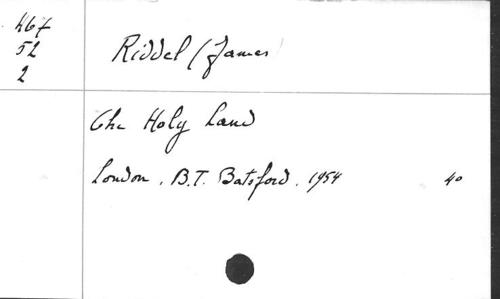 467
52
2
Riddel (James)
The Holy Land
London. B.T. Batsford. 1954 40